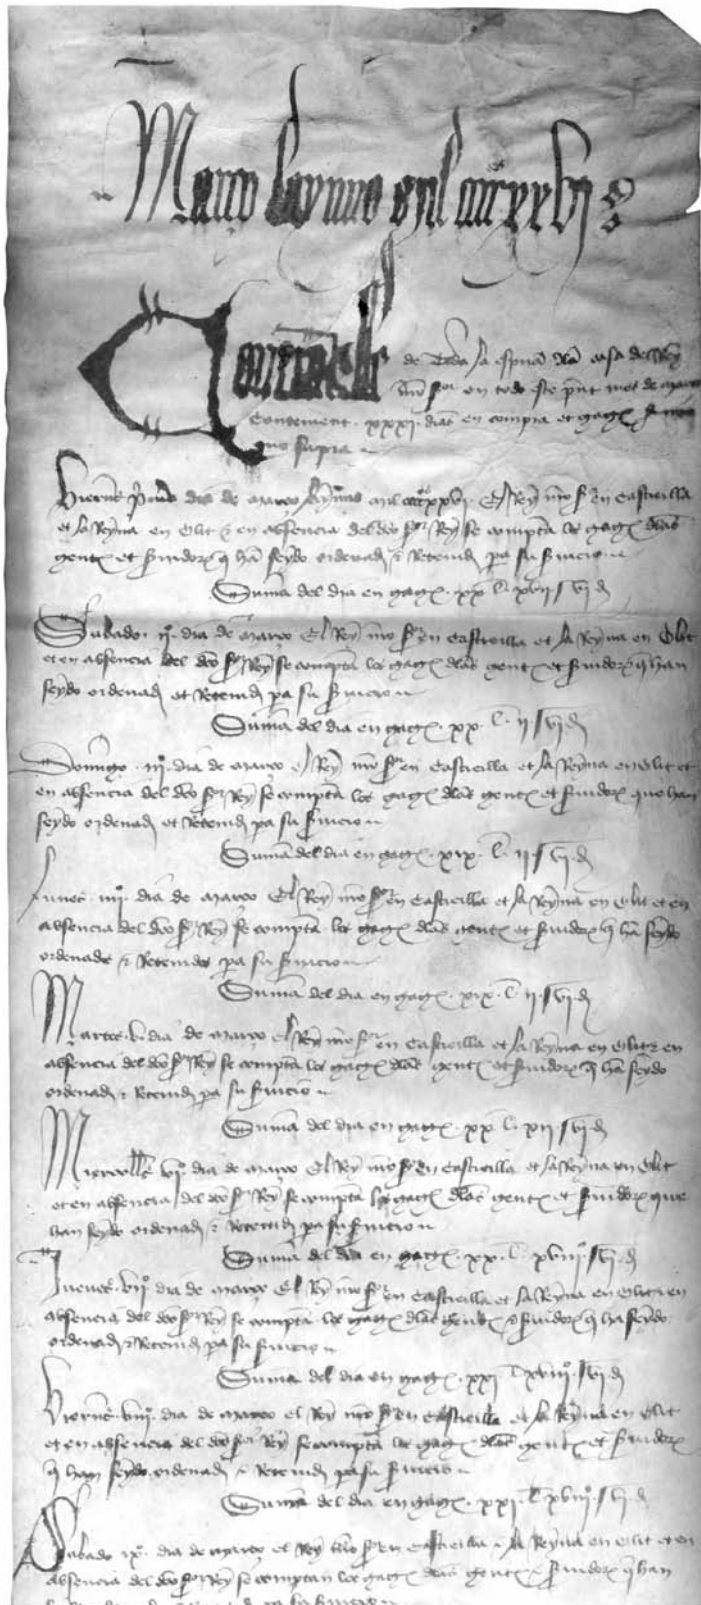 Março l'aynno mil
de toda la espensa de la casa del Rey
en todo este present mes de março
xxxi dias en compra et gages
que supra
Viernes primo dia de março l'aynno mil ccccxxvi El Rey nro Sr en Castieilla
et la Reyna en Olit et en absencia del dco Sor Rey se comptan los gages dlas
gentes et srvidores q han seydo ordenads et Retenids pa su srvicio
Suma del dia en gages xx l. xvii s. vi d.
Sabado ii dia de março El Rey nro Sr en Castieilla et la Reyna en Olit
et en absencia del dco Sor Rey se comptan los gages dlas gentes et srvidores q han
seydo ordenads et Retenids pa su srvicio
Suma del dia en gages xx l. ii s. vi d.
Domingo iii dia de março el Rey nro Sr en Castieilla et la Reyna en Olit et
en absencia del dco Sor Rey se comptan los gages dlas gentes et srvidores que han
seydo ordenads et Retenids pa su srvicio
Suma del dia en gages xix l. ii s. vi d.
Lunes iiii dia de março El Rey nro Sr en Castieilla et la Reyna en Olit et en
absencia del dco Sor Rey se comptan los gages dlas gentes et srvidores q han seydo
ordenados et Retenidos pa su srvicio
Suma del dia en gages xix l. ii s. vi d.
Martes v dia de março el Rey nro Sr en Castieilla et la Reyna en Olit et en
absencia del dco Sor Rey se comptan los gages dlas gentes et srvidores q han seydo
ordenads et Retenids pa su srvicio
Suma del dia en gages xx l. xii s. vi d.
Miercoles vi dia de março El Rey nro Sr en Castieilla et la Reyna en Olit
et en absencia del dco Sor Rey se comptan los gages dlas gentes et srvidores que
han seydo ordenads et Retenids pa su srvicio
Suma del dia en gages xx l. xviii s. vi d.
Jueves vii dia de março El Rey nro Sr en Castieilla et la Reyna en Olit et en
absencia del dco Sor Rey se comptan los gages dlas gentes et srvidores q han seydo
ordenads et Retenids pa su srvicio
Suma del dia en gages xxi l. xviii s. vi d.
Viernes viii dia de março el Rey nro Sr en Castieilla et la Reyna en Olit
et en absencia del dco Sor Rey se comptan los gages dlas gentes et srvidores
q han seydo ordenads et Retenids pa su srvicio
Suma del dia en gages xxi l. xviii s. vi d.
Sabado ix dia de março el Rey nro Sr en Castieilla et la Reyna en Olit et en
absencia del dco Sor Rey se comptan los gages dlas gentes et srvidores q han
pa su srvicio